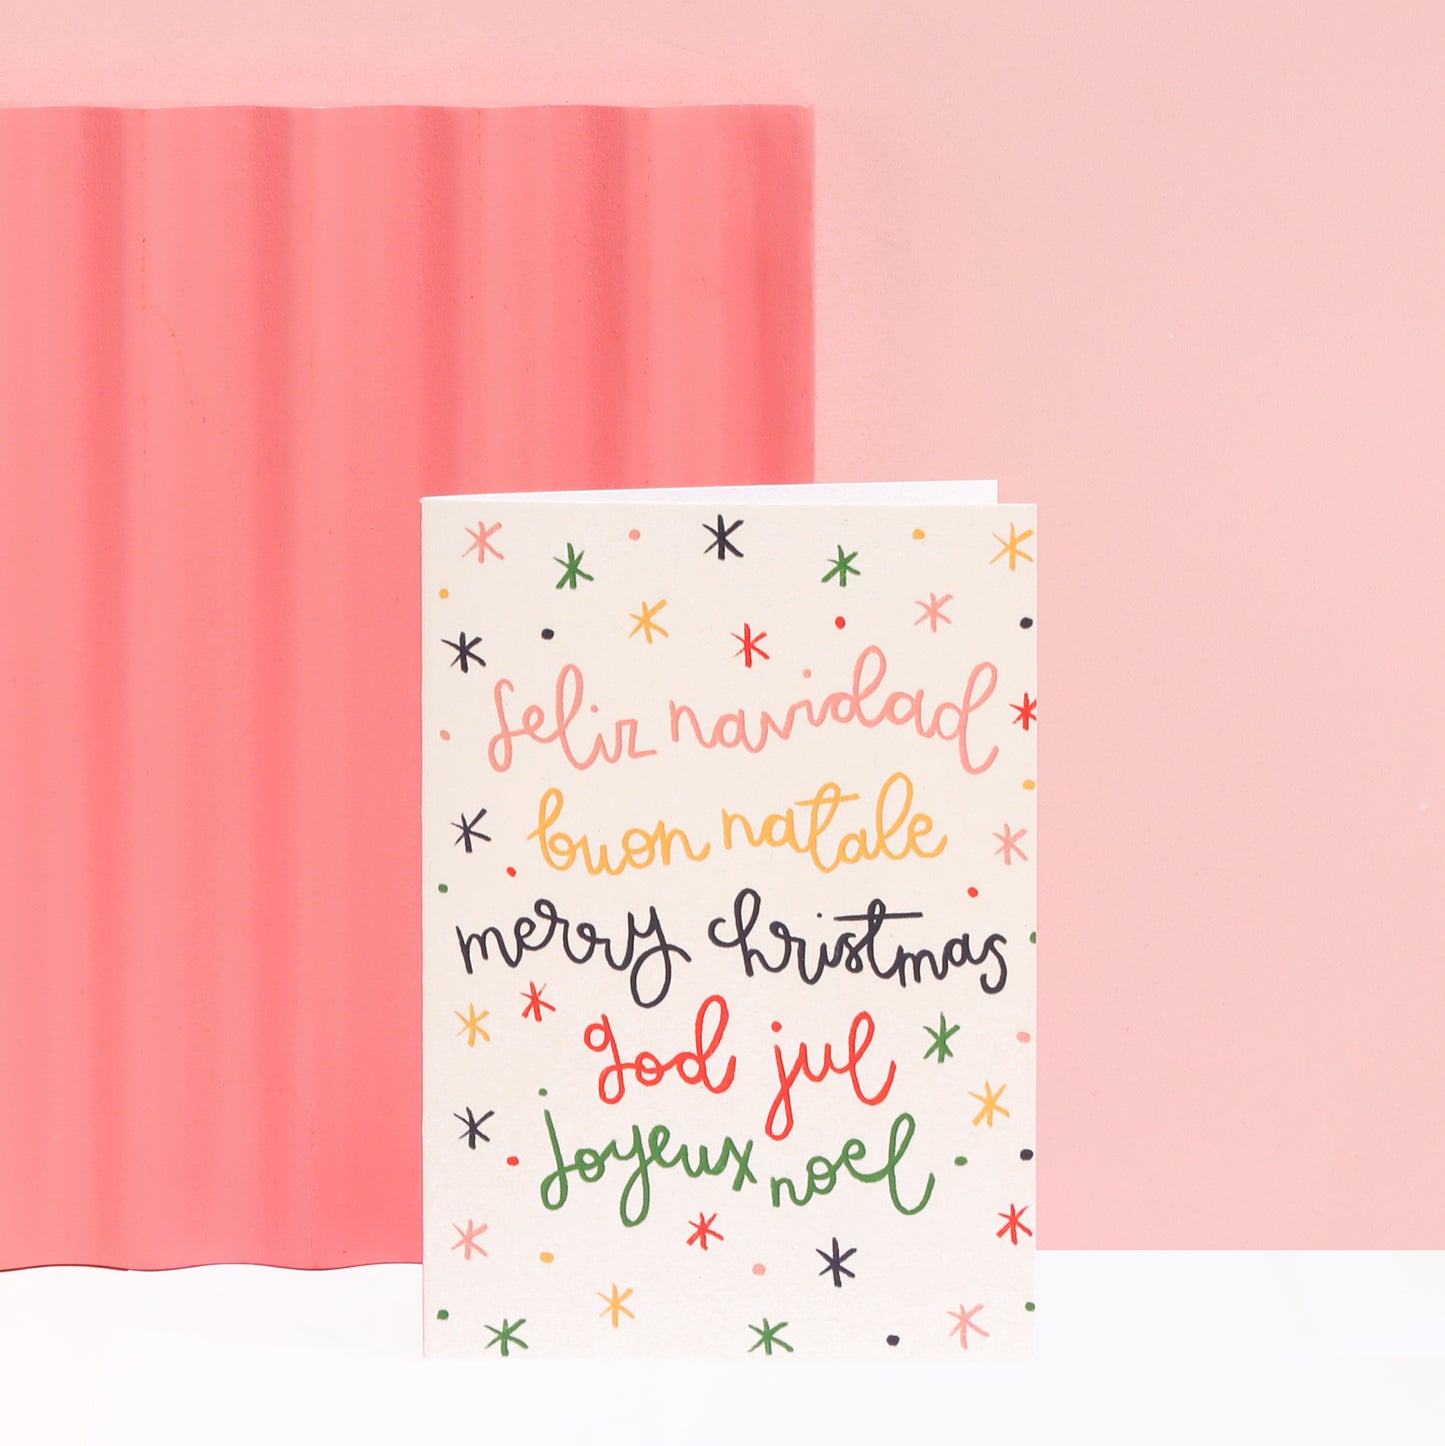 feliz navidad
buon natale
merry christmas
god jul
joyeux noel